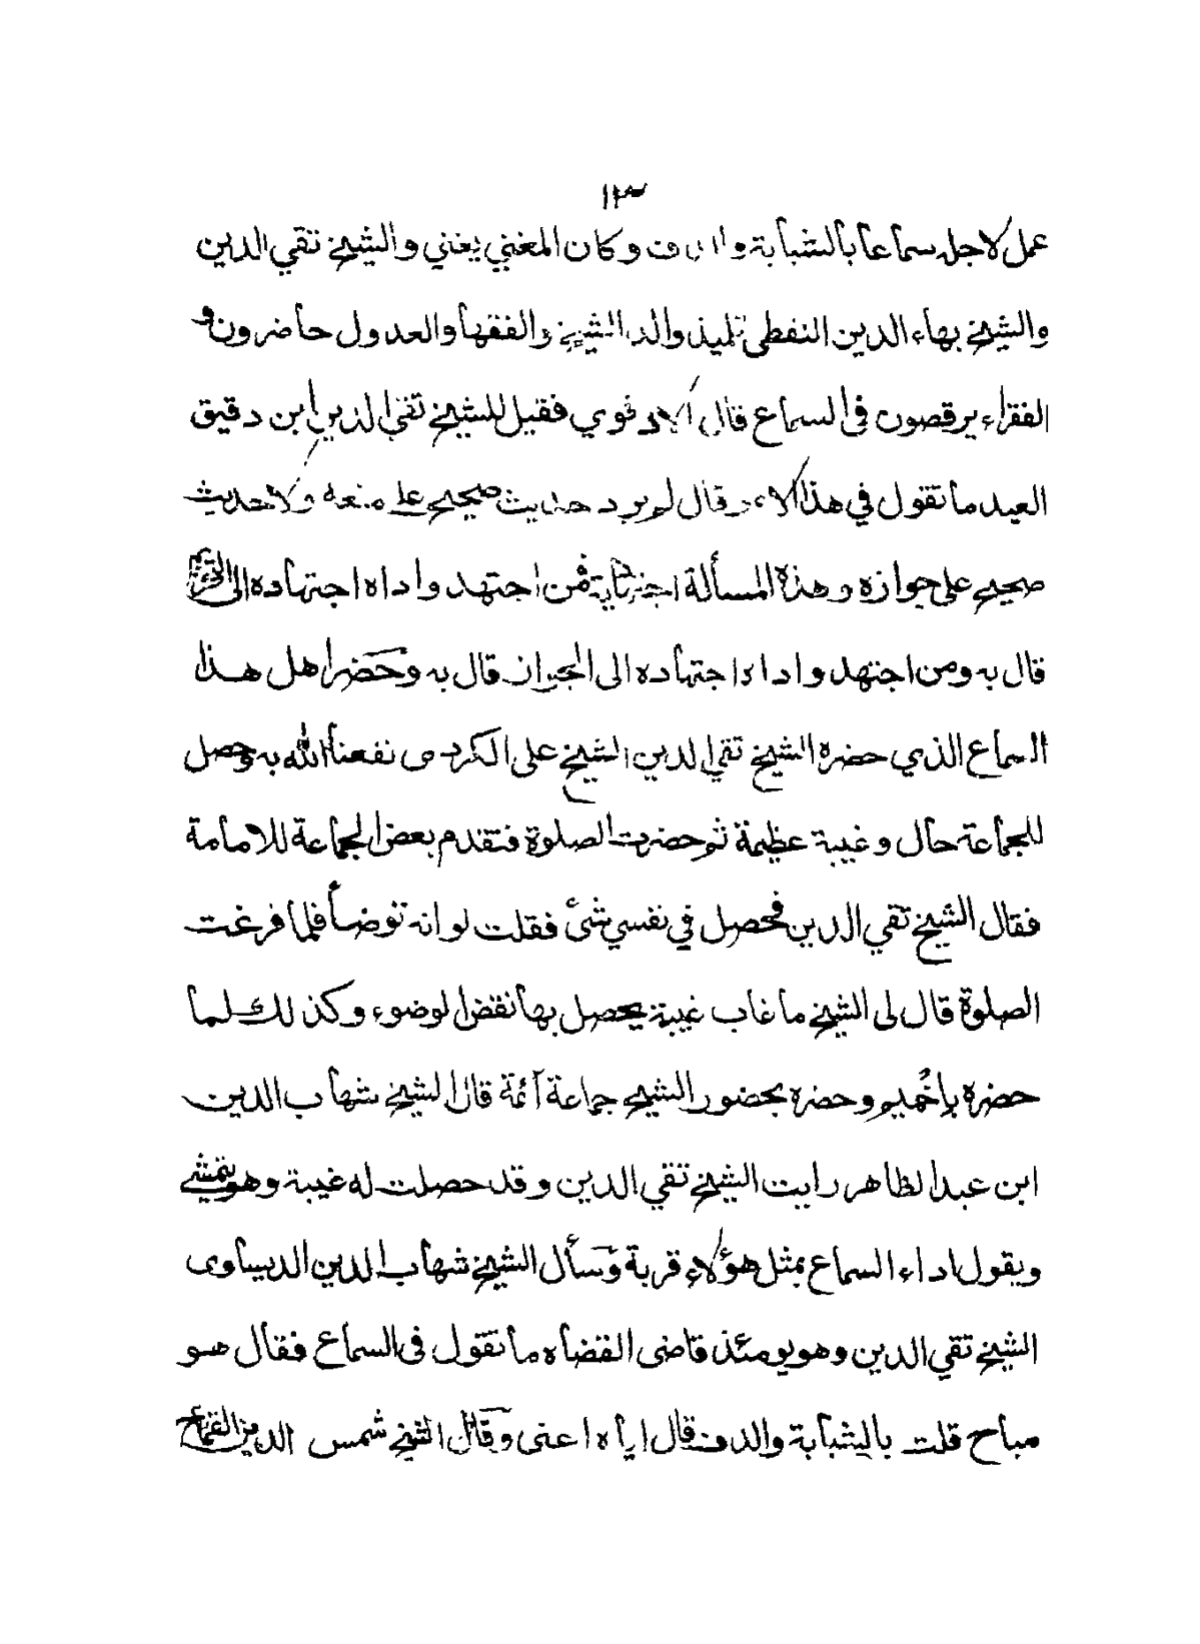 ١٢٣
عمل لاجله سماعا بالشبابة و وكان المغني يغني والشيخ تقي الدين
والشيخ بهاء الدين القفطي تلميذ والد الشيخ والفقها والعدول حاضرون و
الفقراء يرقصون فى السماع قال الادفوي فقيل للشيخ تقي الدين ابن دقيق
العيد ما تقول في هذا الامر قال لم يرد حديث صحيح على منعه ولا حديث
صحيح على جوازه وهذه المسألة اجتهادية فمن اجتهد واداه اجتهاده الى التحريم
قال به ومن اجتهد واداه اجتهاده الى الجواز قال به وحضر اهل هذا
السماع الذي حضره الشيخ تقي الدين الشيخ على الكردى نفعنا الله به وحصل
للجماعة حال وغيبة عظيمة ثم حضرت الصلوة فتقدم بعض الجماعة للامامة
فقال الشيخ تقي الدين فحصل في نفسي شئ فقلت لو انه توضأ فلما فرغت
الصلوة قال لى الشيخ ما غاب غيبة يحصل بها نقض الوضوء وكذلك لما
حضره باخميم وحضره بحضور الشيخ جماعة آئمة قال الشيخ شهاب الدين
ابن عبد الظاهر رايت الشيخ تقي الدين وقد حصلت له غيبة وهو يمشي
ويقول اداء السماع بمثل هؤلاء قربة وسأل الشيخ شهاب الدين الديساوى
الشيخ تقي الدين وهو يومئذ قاضى القضاه ما تقول فى السماع فقال هو
مباح قلت بالشبابة والدف قال اياه اعنى وقال الشيخ شمس الدين القماح